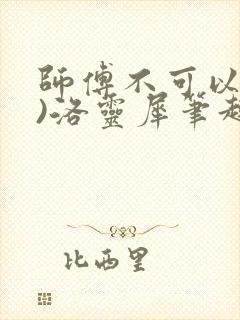 師傅不可以
)洛靈犀筆趣
比西里